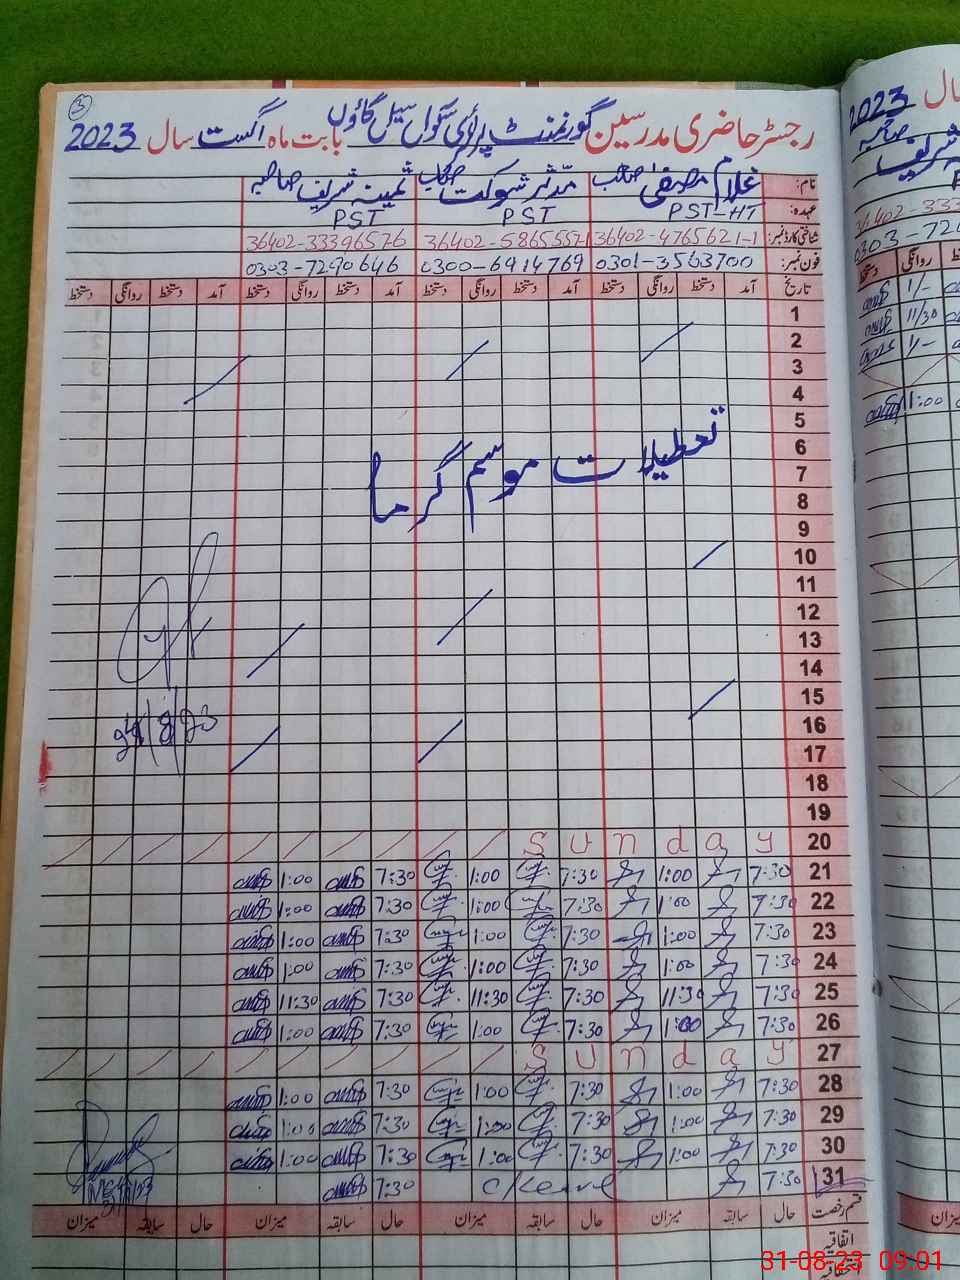 3
رجسٹر حاضری مدرسین گورنمنٹ پرائمری سکول سہیل گاؤں بابت ماہ اگست سال 2023
نام: غلام مصطفیٰ صاحب مدثر شوکت صاحب ثمینہ شریف صاحبہ
عہدہ: PST-HT PST PST
شناختی کارڈ نمبر: 36402-4765621-1 36402-5865557-1 36402-3339657-6
فون نمبر: 0301-3563700 0300-6914769 0303-7290646
تاریخ آمد دستخط روانگی دستخط آمد دستخط روانگی دستخط آمد دستخط روانگی دستخط آمد دستخط روانگی دستخط
1
2
3
4
5
6
تعطیلات موسم گرما
7
8
9
10
11
12
13
14
15
16
17
18
19
20 Sunday
21 7:30 1:00 7:30 1:00 7:30 1:00
22 7:30 1:00 7:30 1:00 7:30 1:00
23 7:30 1:00 7:30 1:00 7:30 1:00
24 7:30 1:00 7:30 1:00 7:30 1:00
25 7:30 11:30 7:30 11:30 7:30 11:30
26 7:30 1:00 7:30 1:00 7:30 1:00
27 Sunday
28 7:30 1:00 7:30 1:00 7:30 1:00
29 7:30 1:00 7:30 1:00 7:30 1:00
30 7:30 1:00 7:30 1:00 7:30 1:00
31 7:30 C/Leave 7:30
قسم رخصت حال سابقہ میزان حال سابقہ میزان حال سابقہ میزان حال سابقہ میزان
اتفاقیہ
سال 2023
روانگی
1/-
11/30
1/-
1:00
میزان
31-08-23 09:01